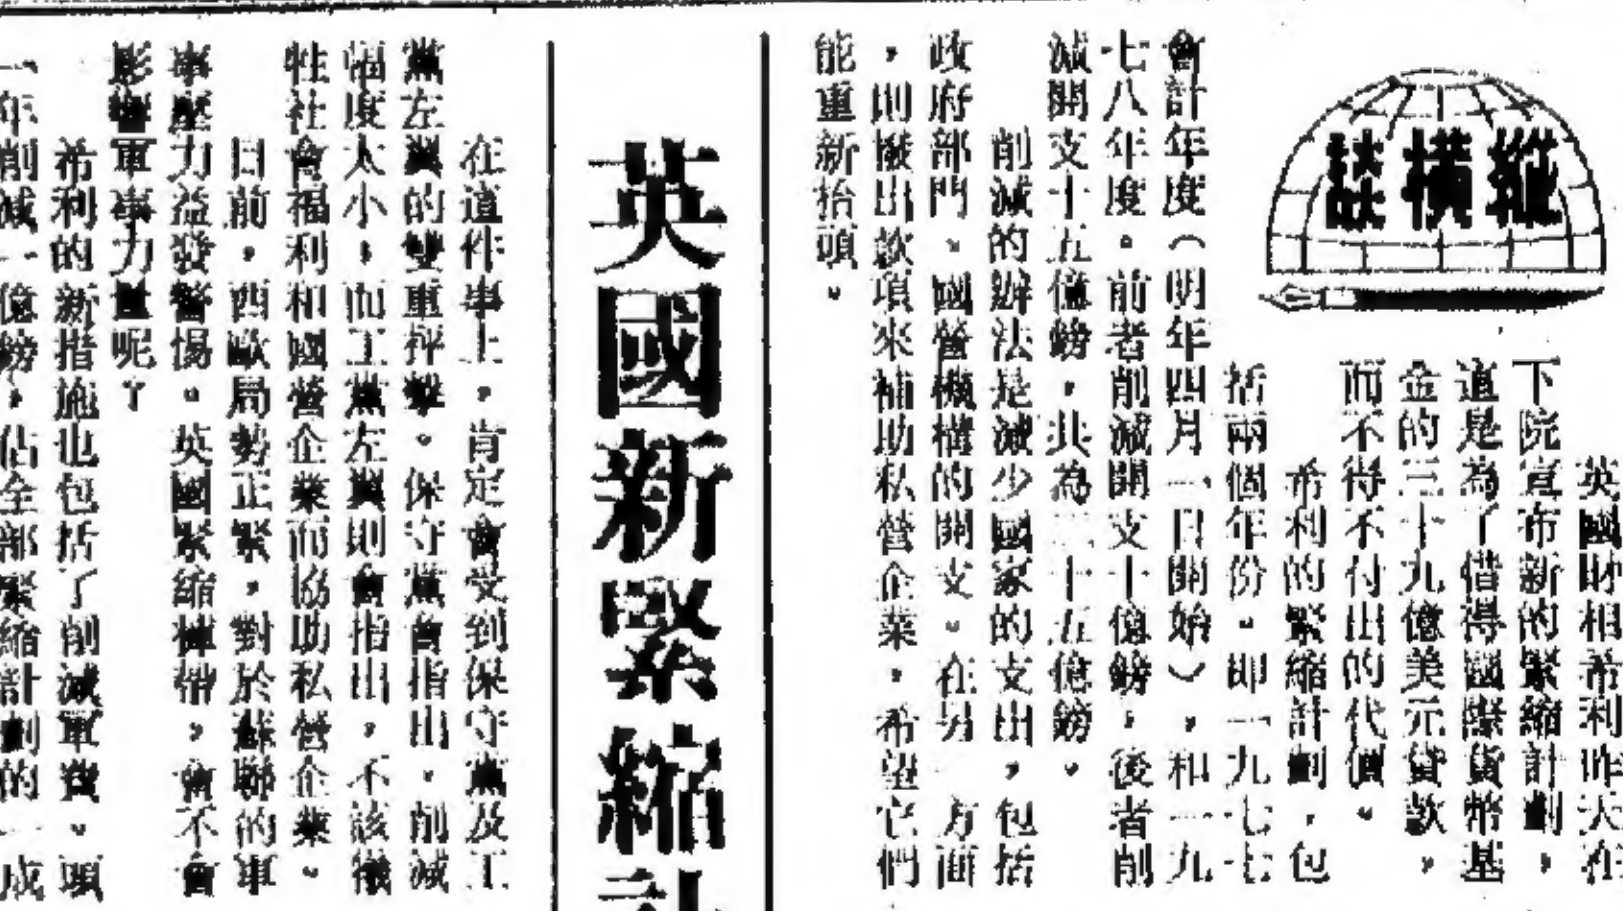 縱橫談
英國財相希利昨天在
下院宣布新的緊縮計劃，
這是為了借得國際貨幣基
金的三十九億美元貸款，
而不得不付出的代價。
希利的緊縮計劃，包
括兩個年份。即一九七七
會計年度（明年四月一日開始），和一九
七八年度。前者削減開支十億鎊，後者削
減開支十五億鎊，共為二十五億鎊。
削減的辦法是減少國家的支出，包括
政府部門、國營機構的開支。在另一方面
，則撥出款項來補助私營企業，希望它們
能重新抬頭。
英國新緊縮計
在這件事上，肯定會受到保守黨及工
黨左翼的雙重抨擊。保守黨會指出，削減
幅度太小，而工黨左翼則會指出，不該犧
牲社會福利和國營企業而協助私營企業。
目前，西歐局勢正緊，對於蘇聯的軍
事壓力益發警惕。英國緊縮褲帶，會不會
影響軍事力量呢？
希利的新措施也包括了削減軍費。頭
一年削減一億鎊，佔全部緊縮計劃的一成